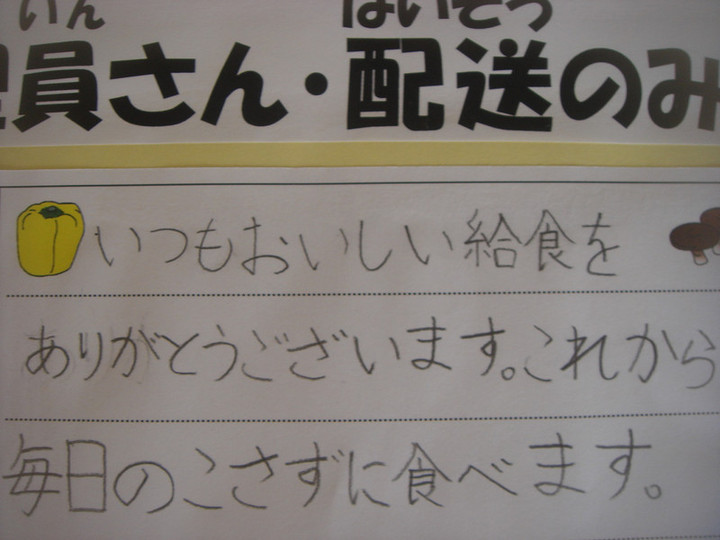 いん はいそう
員さん・配送のみ
いつもおいしい給食を
ありがとうございます。これから
毎日のこさずに食べます。